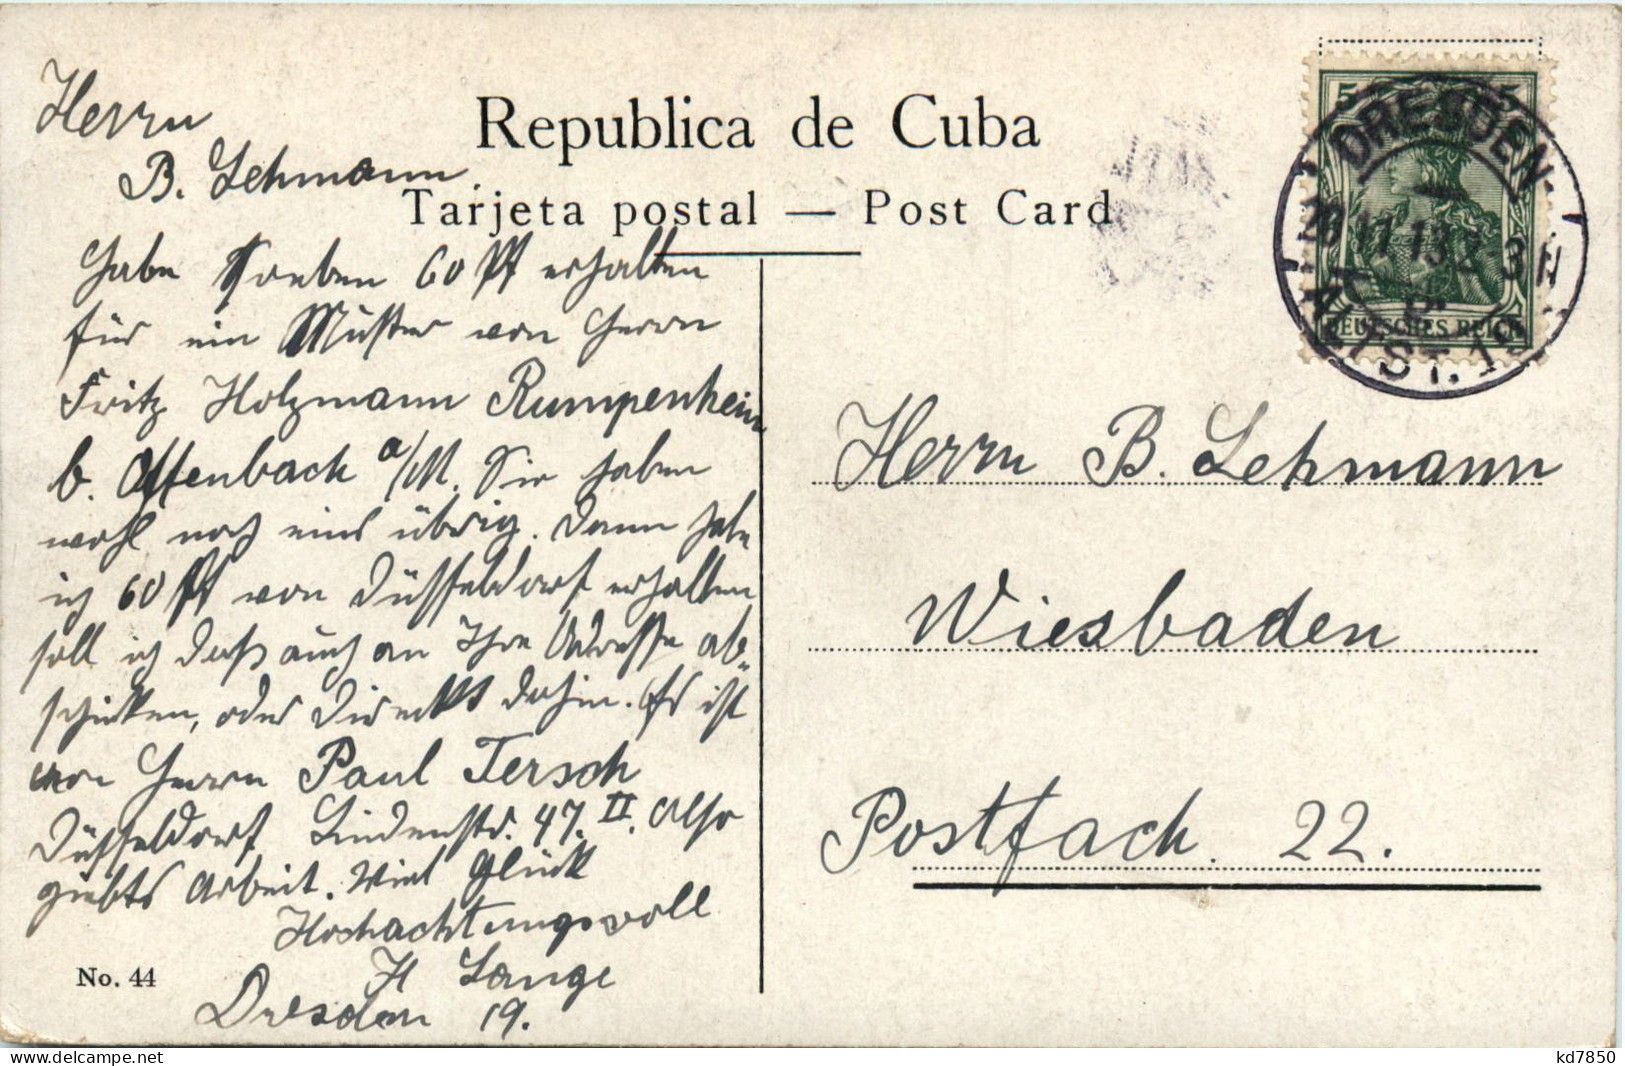 Republica de Cuba
Tarjeta postal — Post Card
Herrn
B. Lehmann.
Habe soeben 60 Pf erhalten
für ein Muster von Herrn
Fritz Holzmann Rumpenheim
b. Offenbach a/M. Sie haben
wohl noch eins übrig. Dann habe
ich 60 Pf von Düsseldorf erhalten
soll ich daß auch an Ihre Adresse ab-
schicken, oder direckt dahin. Es ist
von Herrn Paul Tersch
Düsseldorf Lindenstr. 47. II. Also
giebts Arbeit. Viel Glück
Hochachtungsvoll
H Lange
Dresden 19.
No. 44
5 5
DEUTSCHES REICH
DRESDEN
ALTST. 19
Herrn B. Lehmann
Wiesbaden
Postfach 22.
delcampe.net
kd7850